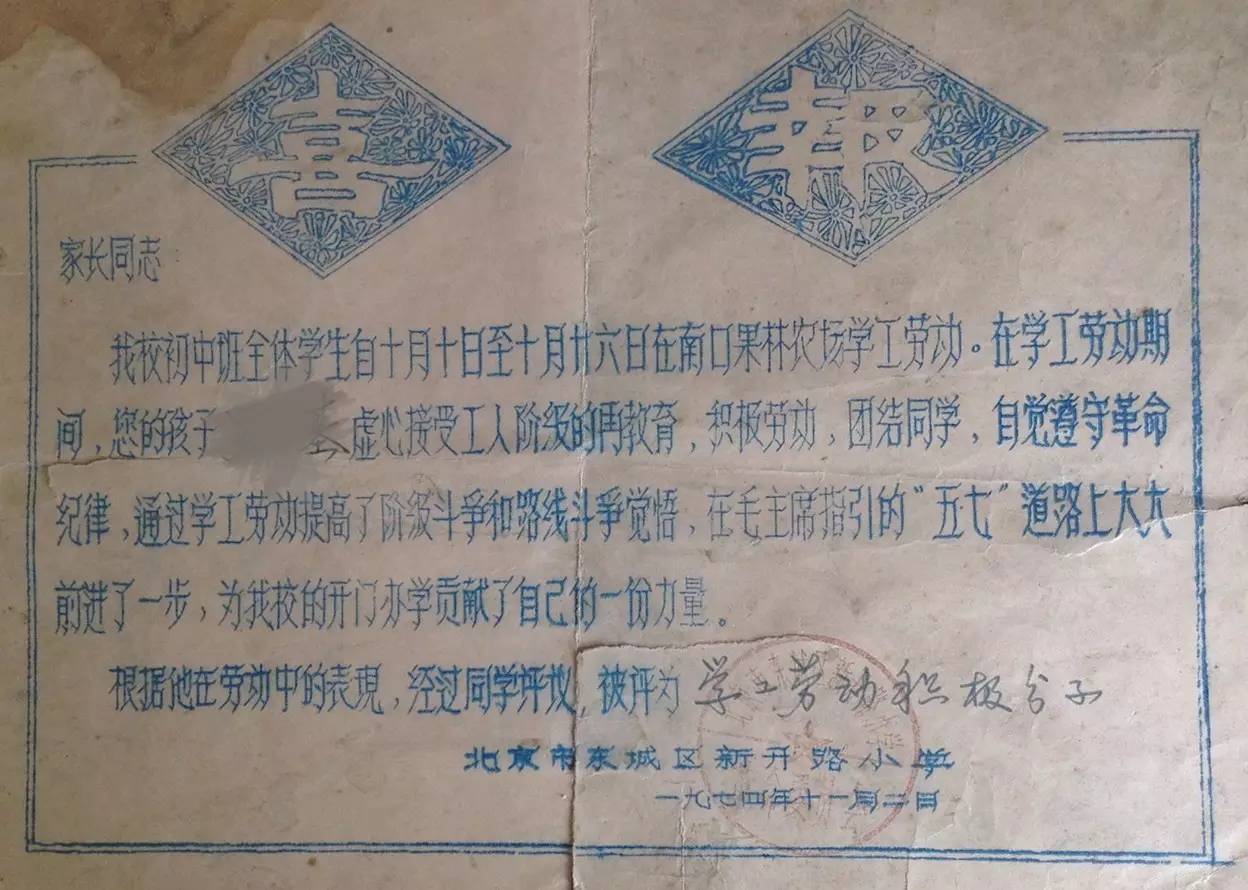 喜报
家长同志:
我校初中班全体学生自十月十日至十月廿六日在南口果林农场学工劳动。在学工劳动期
间,您的孩子 虚心接受工人阶级的再教育,积极劳动,团结同学,自觉遵守革命
纪律,通过学工劳动提高了阶级斗争和路线斗争觉悟,在毛主席指引的“五七”道路上大大
前进了一步,为我校的开门办学贡献了自己的一份力量。
根据他在劳动中的表现,经过同学评议,被评为学工劳动积极分子
北京市东城区新开路小学
一九七四年十一月二日